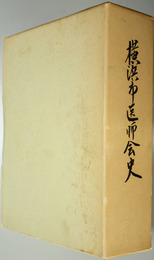 横浜市医師会史